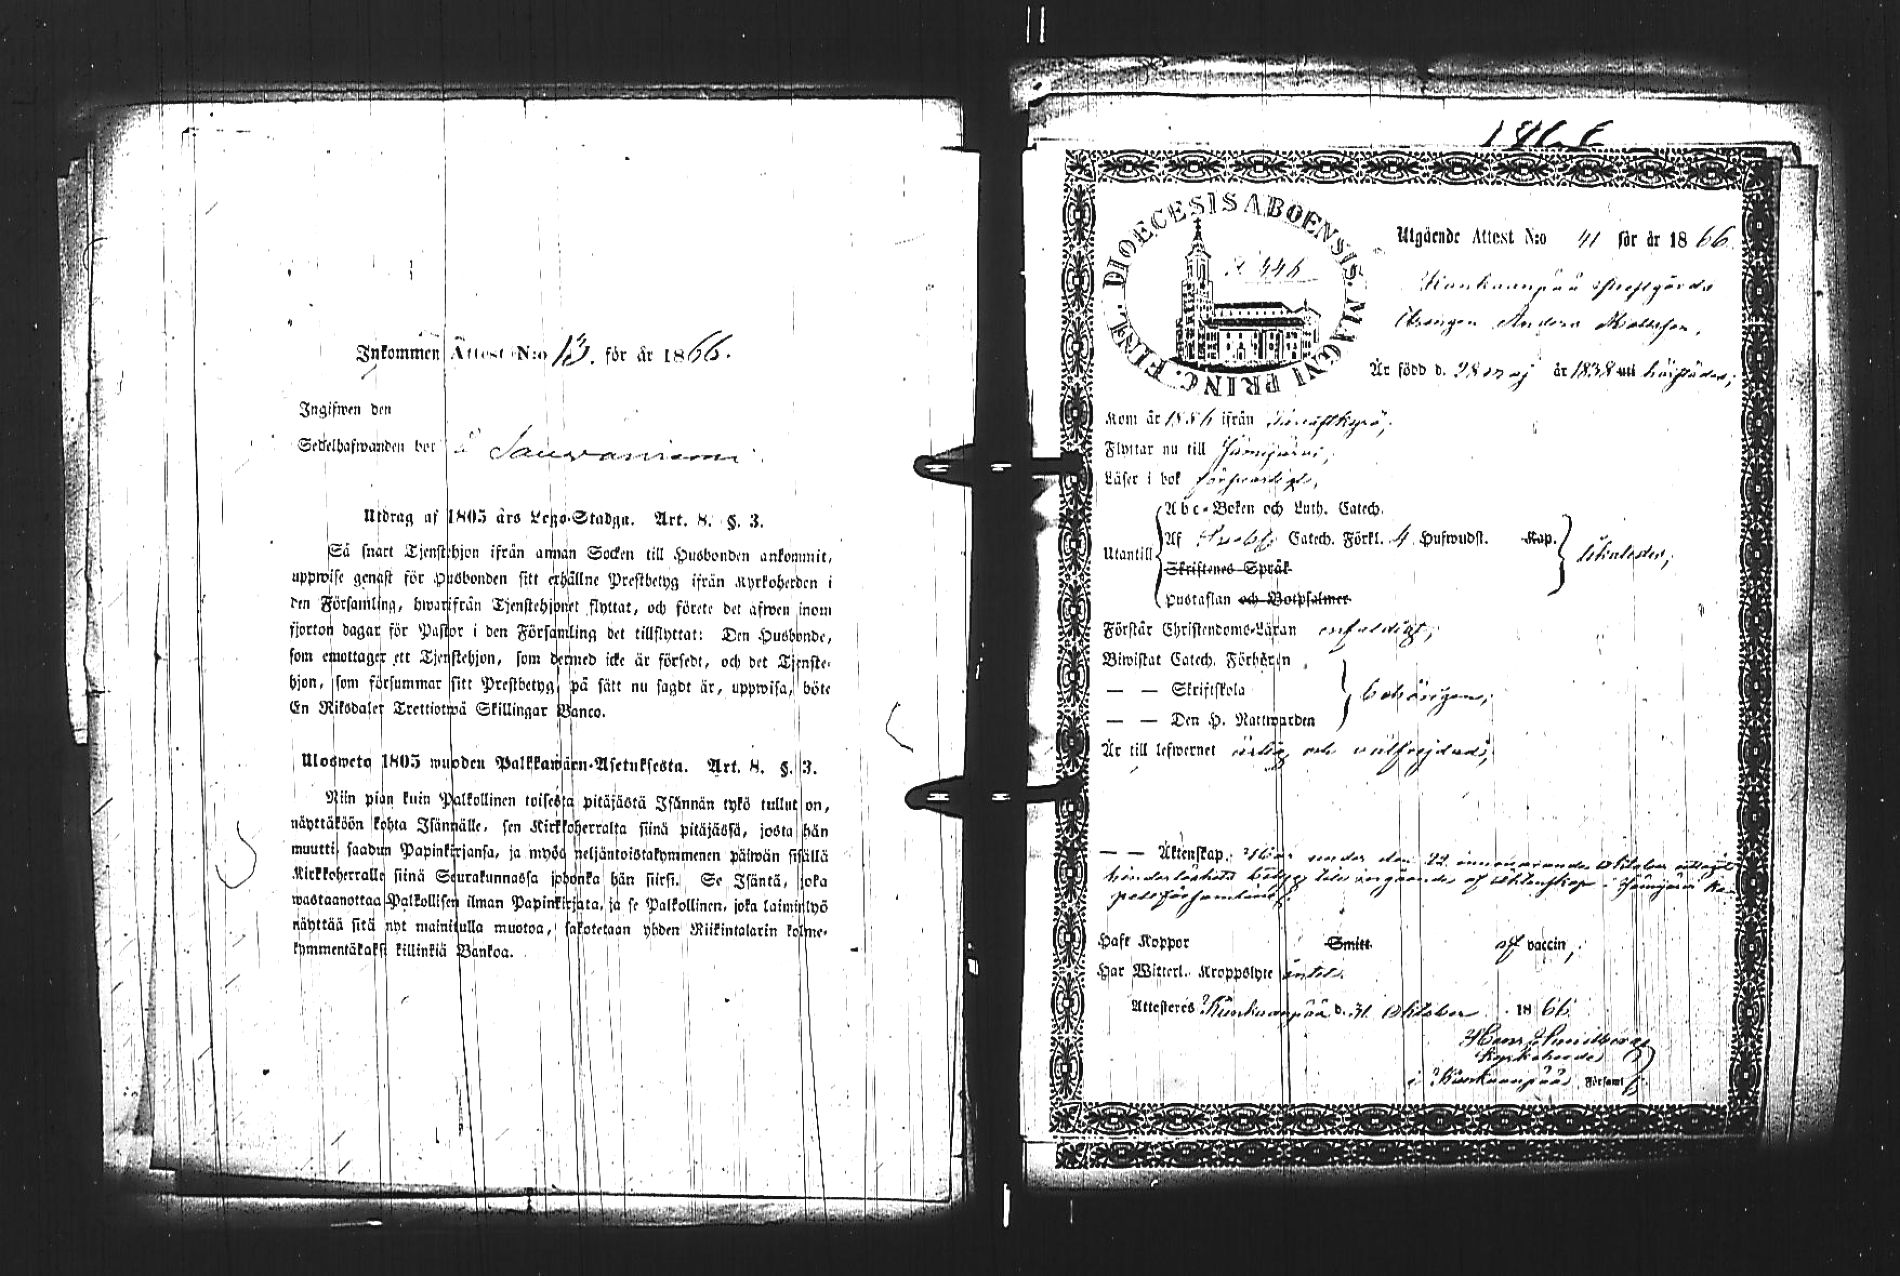 Inkommen Attest N:o 13. för år 1866.
Ingifwen den
Sedelhafwanden bor
Utdrag af 1805 års Lego-Stadga. Art. 8. §. 3.
Så snart Tjenstehjon ifrån annan Socken till Husbonden ankommit,
uppwise genast för Husbonden sitt erhållne Prestbetyg ifrån Kyrkoherden i
den Församling, hwarifrån Tjenstehjonet flyttat, och förete det äfwen inom
fjorton dagar för Pastor i den Församling det tillflyttat: Den Husbonde,
som emottager ett Tjenstehjon, som dermed icke är försedt, och det Tjenste-
hjon, som försummar sitt Prestbetyg, på sätt nu sagdt är, uppwisa, böte
En Riksdaler Trettiotwå Skillingar Banco.
Ulosweto 1805 wuoden Palkkawäen-Asetuksesta. Art. 8. §. 3.
Niin pian kuin Palkollinen toisesta pitäjästä Isännän tykö tullut on,
näyttäköön kohta Isännälle, sen Kirkkoherralta siinä pitäjässä, josta hän
muutti, saadun Papinkirjansa, ja myös neljäntoistakymmenen päiwän sisällä
Kirkkoherralle siinä Seurakunnassa johonka hän siirsi. Se Isäntä, joka
wastaanottaa Palkollisen ilman Papinkirjata, ja se Palkollinen, joka laiminlyö
näyttää sitä nyt mainitulla muotoa, sakotetaan yhden Riikintalarin kolme-
kymmentäkaksi killinkiä Bankoa.
1866
DIOECESIS ABOENSIS. MAGNI PRINC. FINL.
Utgående Attest N:o 41 för år 1866
Kankaanpää Prestgårds
Drengen Anders
Är född d. 28 Maj år 1838 uti härstädes,
Kom år ifrån
Flyttar nu till Jämijärvi,
Läser i bok försvarligt,
Utantill
Abc-Boken och Luth. Catech.
Af Catech. Förkl. 4 Hufwudst. Kap.
Skriftenes Språk
Hustaflan och Botpsalmer
Förstår Christendoms-Läran enfaldigt,
Biwistat Catech. Förhören
— — Skriftskola
— — Den H. Nattwarden
behörigen,
Är till lefwernet ärlig och välfrejdad,
— — Äktenskap. under den 22 innevarande Oktober
af Äktenskap i Jämijärvi Ka-
pellförsamling.
Haft Koppor Smitt af vaccin,
Har Witterl. Kroppslyte intet.
Attesteres Kankaanpää d. 31 Oktober 1866
Kyrkoherde
i Kankaanpää Församl.